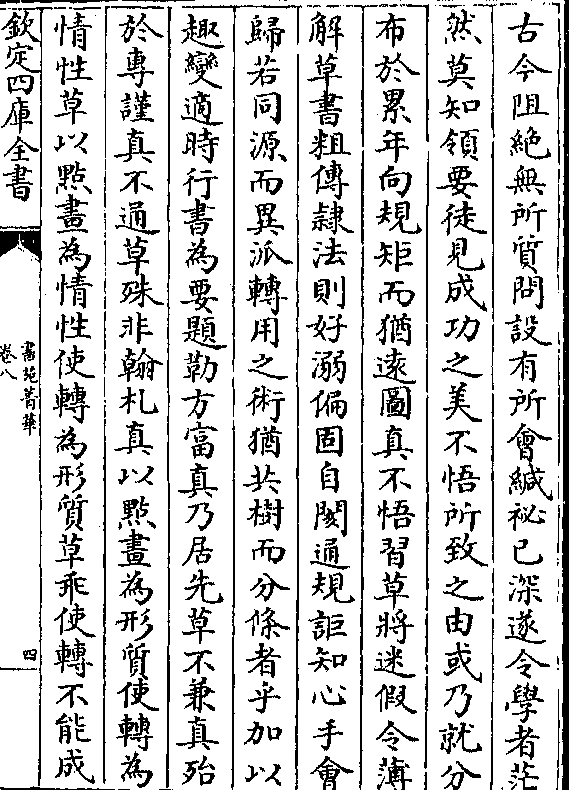 古今阻絶無所質問設有所會緘祕已深遂令學者茫
然莫知領要徒見成功之美不悟所致之由或乃就分
布於累年向規矩而猶遠圖真不悟習草將迷假令薄
解草書粗傳隸法則好溺偏固自閡通規詎知心手會
歸若同源而異派轉用之術猶共樹而分條者乎加以
趣變適時行書為要題勒方富真乃居先草不兼真殆
於專謹真不通草殊非翰札真以㸃畫為形質使轉為
情性草以㸃畫為情性使轉為形質草乖使轉不能成
欽定四庫全書
書苑菁華
卷八
四